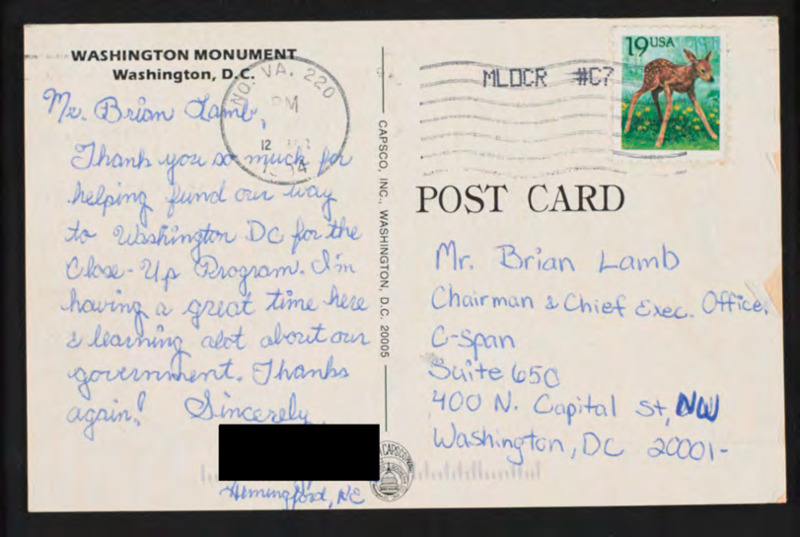 WASHINGTON MONUMENT
Washington, D.C.
Mr. Brian Lamb,
Thank you so much for
helping fund our way
to Washington DC for the
Close-Up Program. I'm
having a great time here
& learning alot about our
government. Thanks
again! Sincerely,
Hemingford, NE
NO. VA. 220
PM
12
CAPSCO, INC., WASHINGTON, D.C. 20005
MLOCR #C7
19 USA
POST CARD
Mr. Brian Lamb
Chairman & Chief Exec. Office.
C-Span
Suite 650
400 N. Capital St, NW
Washington, DC 20001-